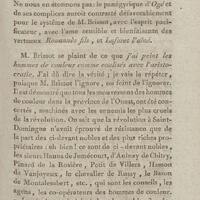 Ne nous en étonnons pas; le panégyrique d'Ogé et
de ses complices auroit contrasté désavorablement
pour le système de M. Brissot, avec l'esprit paci-
ficateur, avec l'ame sensible et bienfaisante des
vertueux Raimonds fils, et Lafosse l'aîné.
M. Brissot se plaint de ce que j'ai peint les
hommes de couleur comme coalisés avec l'aristo-
cratie. J'ai dû dire la vérité; je vais la répéter,
puisque M. Brissot l'ignore, ou feint de l'ignorer.
Il est donc constant et très-constant que les hommes
de couleur dans la province de l'Ouest, ont été con-
certés, machinés avec les ennemis les plus cruels
de la révolution. On sait que la révolution à Saint-
Domingue n'avoit éprouvé de résistance que de
la part des ci-devant nobles et des plus riches pro-
priétaires. eh bien! ce sont de ci-devant nobles,
les sieurs Hanus de Jumécourt, d'Aulnay de Chitry,
Pinard de la Rosière, Petit de Villers, Hamon
de Vaujoyeux, le chevalier de Russy, le Baron
de Montalembert, etc., qui sont les conseils, les
agens, les co-opérateurs, les guides des hommes